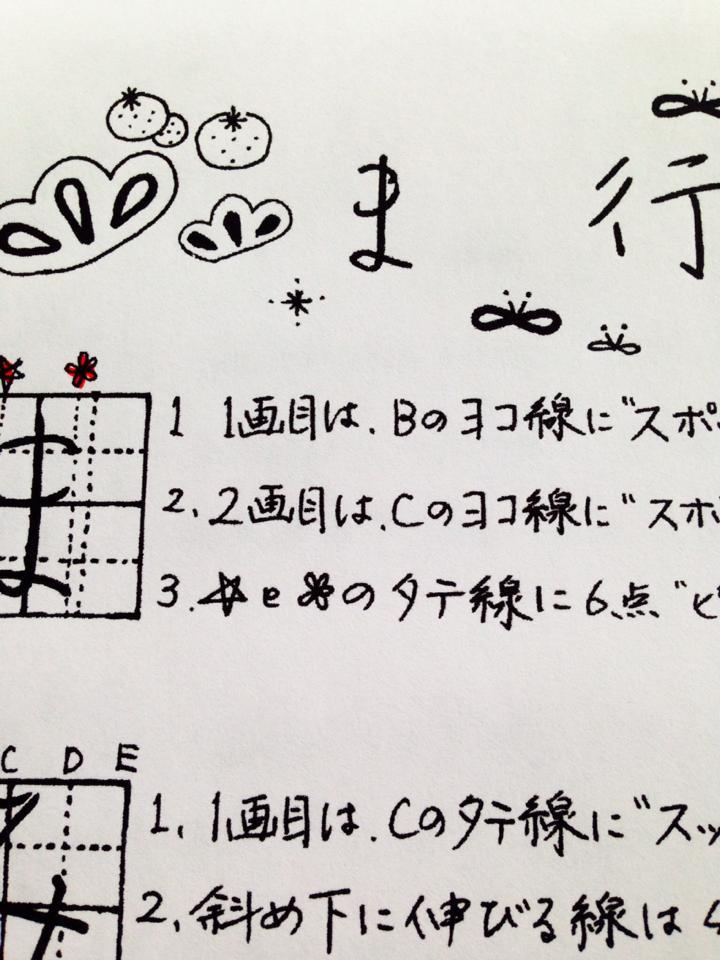 ま 行
1 1画目は、Bのヨコ線に"スポ
2、2画目は、Cのヨコ線に"スポ
3、 と のタテ線に6点"ピ
C D E
1、1画目は、Cのタテ線に"スッ
2、斜め下に伸びる線は